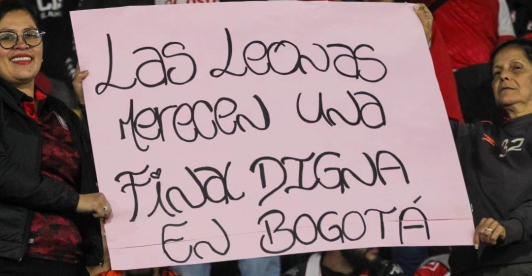 Las Leonas
Merecen una
Final DIGNA
EN BOGOTÁ
32